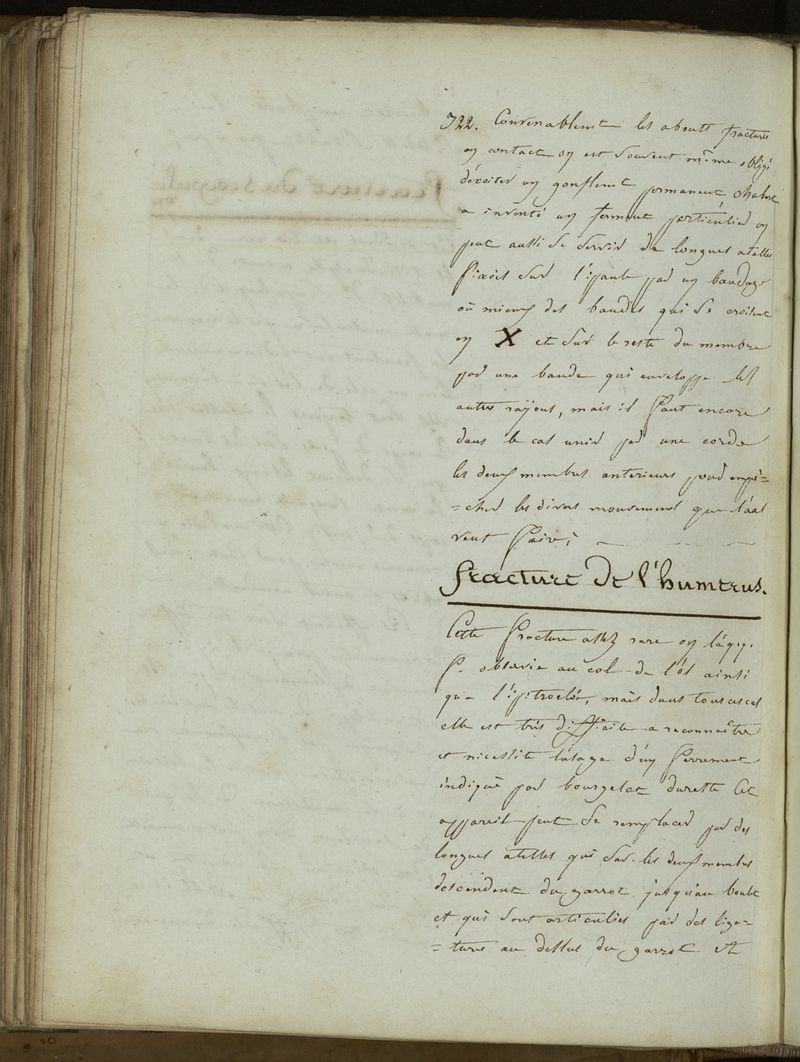 722. Convenablemt les aboutts fracturés
en contact on est souvent même obligé
d'éxciter un gonflemt permanent chabert
a inventé un ferrment particulier on
peut aussi se servir de longues atelles
fixées sur l'épaule par un bandage
où mieux des bandes qui se croisent
en X et sur le reste du membre
par une bande qui enveloppe les
autres rayons, mais il faut encore
dans le cas unir par une corde
les deux membres antérieurs pour empê=
=cher les divers mouvement que l'aal
veut faire;
fracture de l'humerus.
Cette fracture assez rare on l'a qq.
f. observée au col de l'os ainsi
que l'épitroclée, mais dans tous ces cas
elle est très difficile a reconnaître
et nécessite l'usage d'un ferrement
indiqué par bourgelat durette Cet
appareil peut se remplacer par des
longues atelles qui sur les deux membres
descendent du garrot jusqu'au boulet
et qui sont articulées par des liga=
=tures au dessus du garrot et